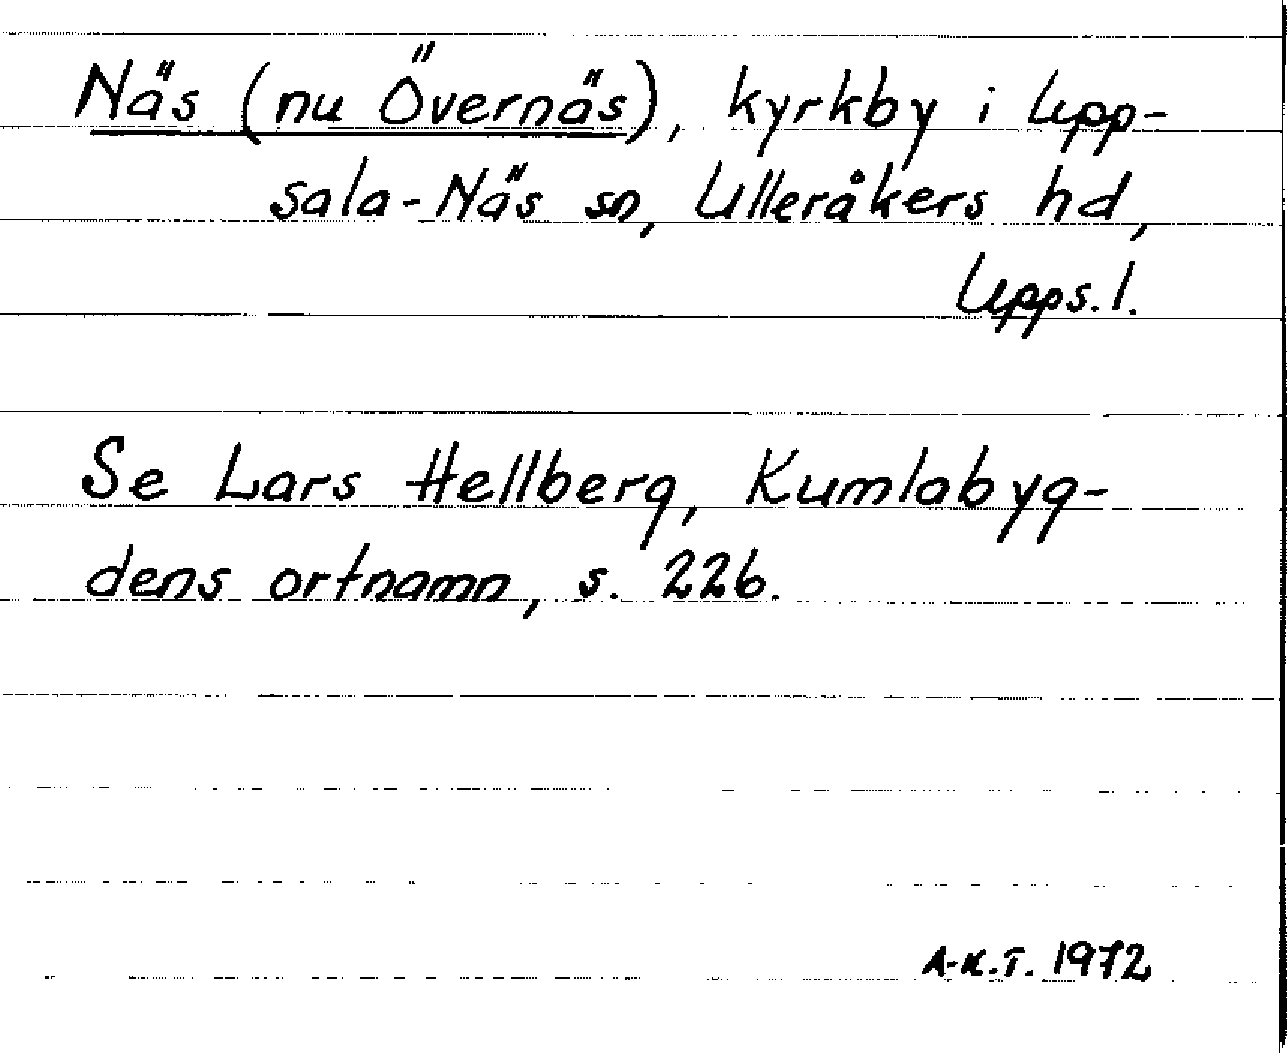 Näs (nu Övernäs), kyrkby i Upp-
sala-Näs sn, Ulleråkers hd,
Upps.l.
Se Lars Hellberg, Kumlabyg-
dens ortnamn, s. 226.
A-K.T. 1972